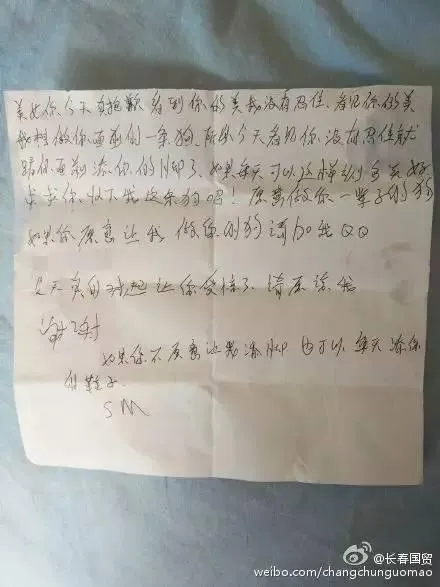 美女你今天真抱歉看到你的美我没有忍住、看见你的美
我想做你面前的一条狗、所以今天看见你没有忍住就
跪你面前添你的脚了、如果每天可以这样该多美好
求求你、收下我这条狗吧！愿意做你一辈子的狗
如果你愿意让我做你的狗请加我QQ
今天真的对起让你受惊了 请原谅我
谢谢
如果你不愿意让我添脚 也可以每天添你
的鞋子
SM
@长春国贸
weibo.com/changchunguomao